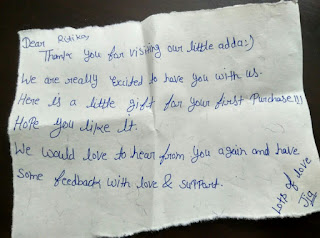 Dear Ritika,
Thank you for visiting our little adda:)
We are really Excited to have you with us.
Here is a little gift for your first Purchase!!!
Hope you like it.
We would love to hear from you again and have
some feedback with love & support.
Lots of love